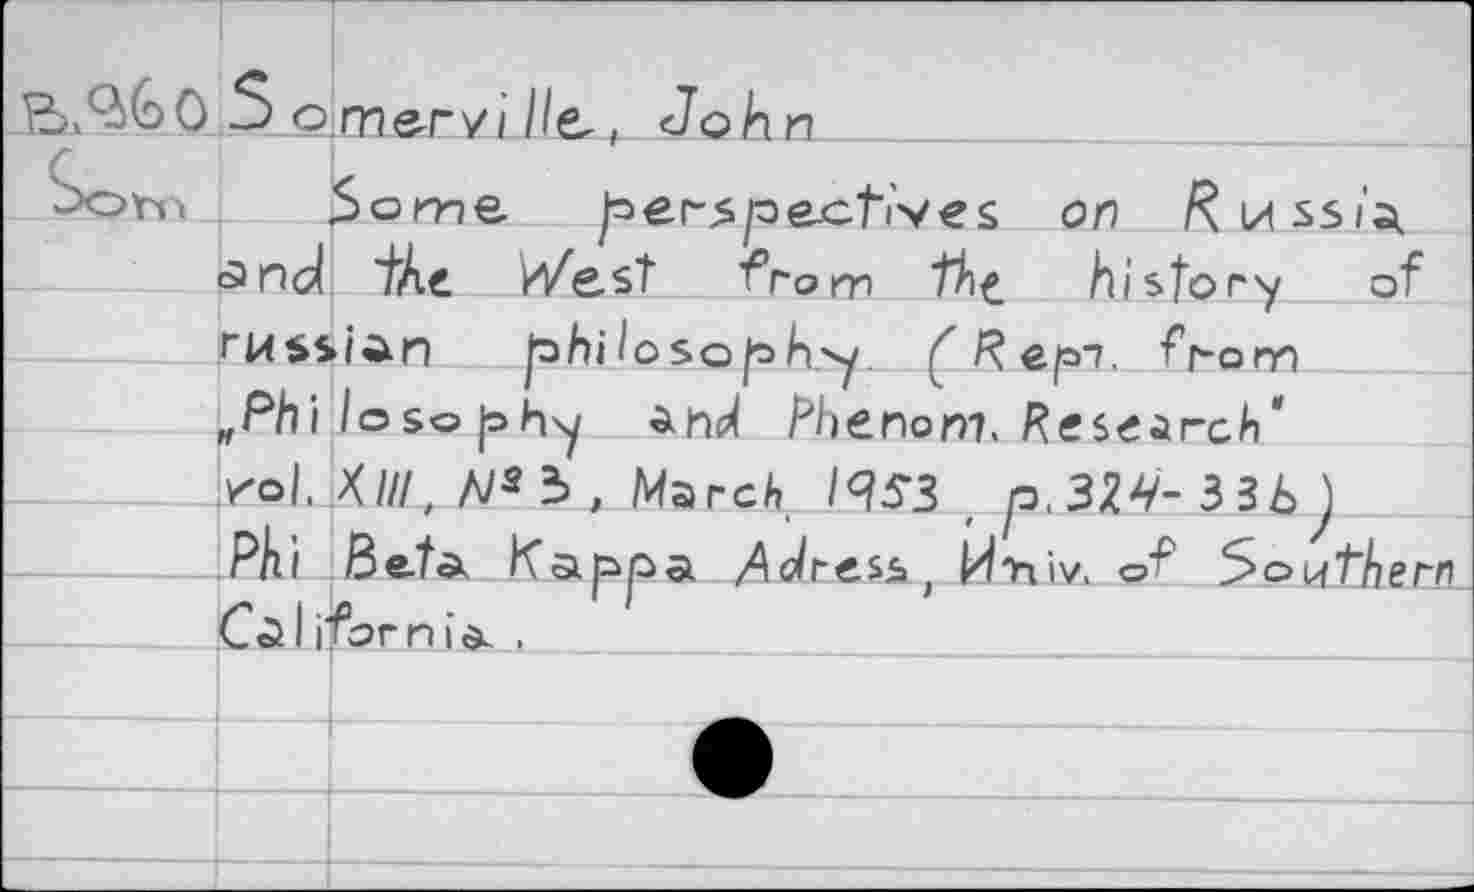 B.960 Somerville, John
Som Some perspectives on Russia
and the West from the history of
russian philosophy. (Repr. from
„Philosophy and Phenom. Research"
vol. XIII, Nº 3, March 1953, p. 324-336)
Phi Beta Kappa Adress, Univ. of Southern
California.